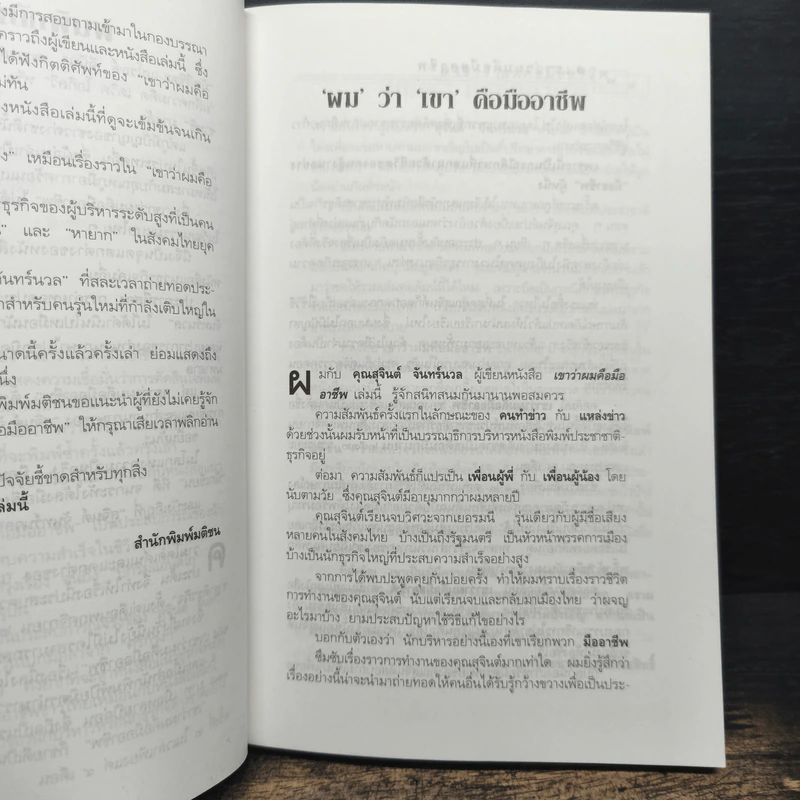 งมีการสอบถามเข้ามาในกองบรรณา
คราวถึงผู้เขียนและหนังสือเล่มนี้ ซึ่ง
ได้ฟังกิตติศัพท์ของ “เขาว่าผมคือ
ม่ทัน
งหนังสือเล่มนี้ที่ดูจะเข้มข้นจนเกิน
ง” เหมือนเรื่องราวใน “เขาว่าผมคือ
ธุรกิจของผู้บริหารระดับสูงที่เป็นคน
” และ “หายาก” ในสังคมไทยยุค
จันทร์นวล” ที่สละเวลาถ่ายทอดประ-
าสำหรับคนรุ่นใหม่ที่กำลังเติบใหญ่ใน
นาดนี้ครั้งแล้วครั้งเล่า ย่อมแสดงถึง
นึ่ง
พิมพ์มติชนขอแนะนำผู้ที่ยังไม่เคยรู้จัก
อมืออาชีพ” ให้กรุณาเสียเวลาพลิกอ่าน
ปัจจัยชี้ขาดสำหรับทุกสิ่ง
ล่มนี้
สำนักพิมพ์มติชน
‘ผม’ ว่า ‘เขา’ คือมืออาชีพ
ผมกับ คุณสุจินต์ จันทร์นวล ผู้เขียนหนังสือ เขาว่าผมคือมือ
อาชีพ เล่มนี้ รู้จักสนิทสนมกันมานานพอสมควร
ความสัมพันธ์ครั้งแรกในลักษณะของ คนทำข่าว กับ แหล่งข่าว
ด้วยช่วงนั้นผมรับหน้าที่เป็นบรรณาธิการบริหารหนังสือพิมพ์ประชาชาติ-
ธุรกิจอยู่
ต่อมา ความสัมพันธ์ก็แปรเป็น เพื่อนผู้พี่ กับ เพื่อนผู้น้อง โดย
นับตามวัย ซึ่งคุณสุจินต์มีอายุมากกว่าผมหลายปี
คุณสุจินต์เรียนจบวิศวะจากเยอรมนี รุ่นเดียวกับผู้มีชื่อเสียง
หลายคนในสังคมไทย บ้างเป็นถึงรัฐมนตรี เป็นหัวหน้าพรรคการเมือง
บ้างเป็นนักธุรกิจใหญ่ที่ประสบความสำเร็จอย่างสูง
จากการได้พบปะพูดคุยกันบ่อยครั้ง ทำให้ผมทราบเรื่องราวชีวิต
การทำงานของคุณสุจินต์ นับแต่เรียนจบและกลับมาเมืองไทย ว่าผจญ
อะไรมาบ้าง ยามประสบปัญหาใช้วิธีแก้ไขอย่างไร
บอกกับตัวเองว่า นักบริหารอย่างนี้เองที่เขาเรียกพวก มืออาชีพ
ซึมซับเรื่องราวการทำงานของคุณสุจินต์มากเท่าใด ผมยิ่งรู้สึกว่า
เรื่องอย่างนี้น่าจะนำมาถ่ายทอดให้คนอื่นได้รับรู้กว้างขวางเพื่อเป็นประ-